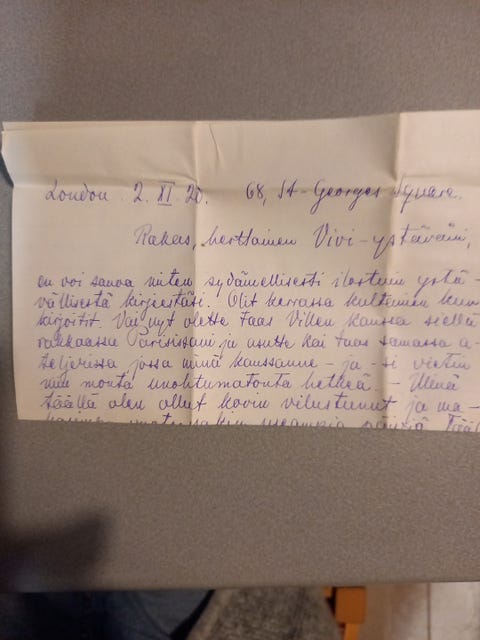 London. 2. XI. 20. 68, St-Georges Square.
Rakas, herttainen Vivi-ystäväin,
en voi sanoa miten sydämellisesti ilostuin ystä-
vällisestä kirjeestäsi. Olit kerrassa kultainen kun
kirjoitit. Vai nyt olette taas Villen kanssa siellä
rakkaassa Pariisissani ja asutte kai taas samassa a-
teljeerissa jossa minä kanssanne - ja - si vietin
niin monta unohtumatonta hetkeä. - Minä
täällä olen ollut kovin vilustunut ja ma-
useampia päiviä